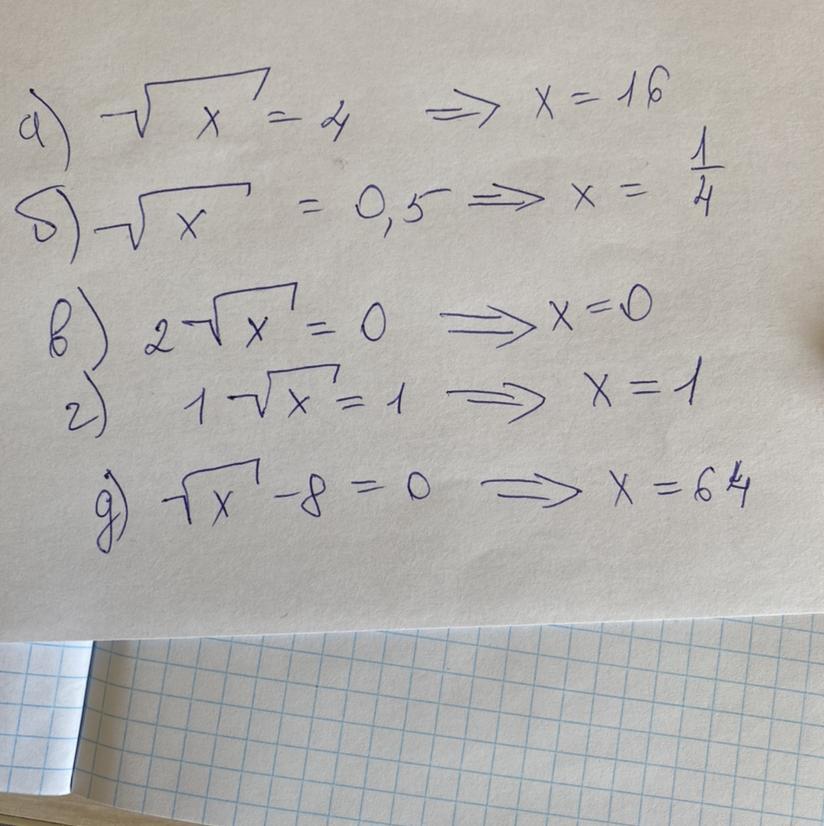 а) √x = 4 ⟹ x = 16
б) √x = 0,5 ⟹ x = 1/4
в) 2√x = 0 ⟹ x = 0
г) 1√x = 1 ⟹ x = 1
д) √x - 8 = 0 ⟹ x = 64